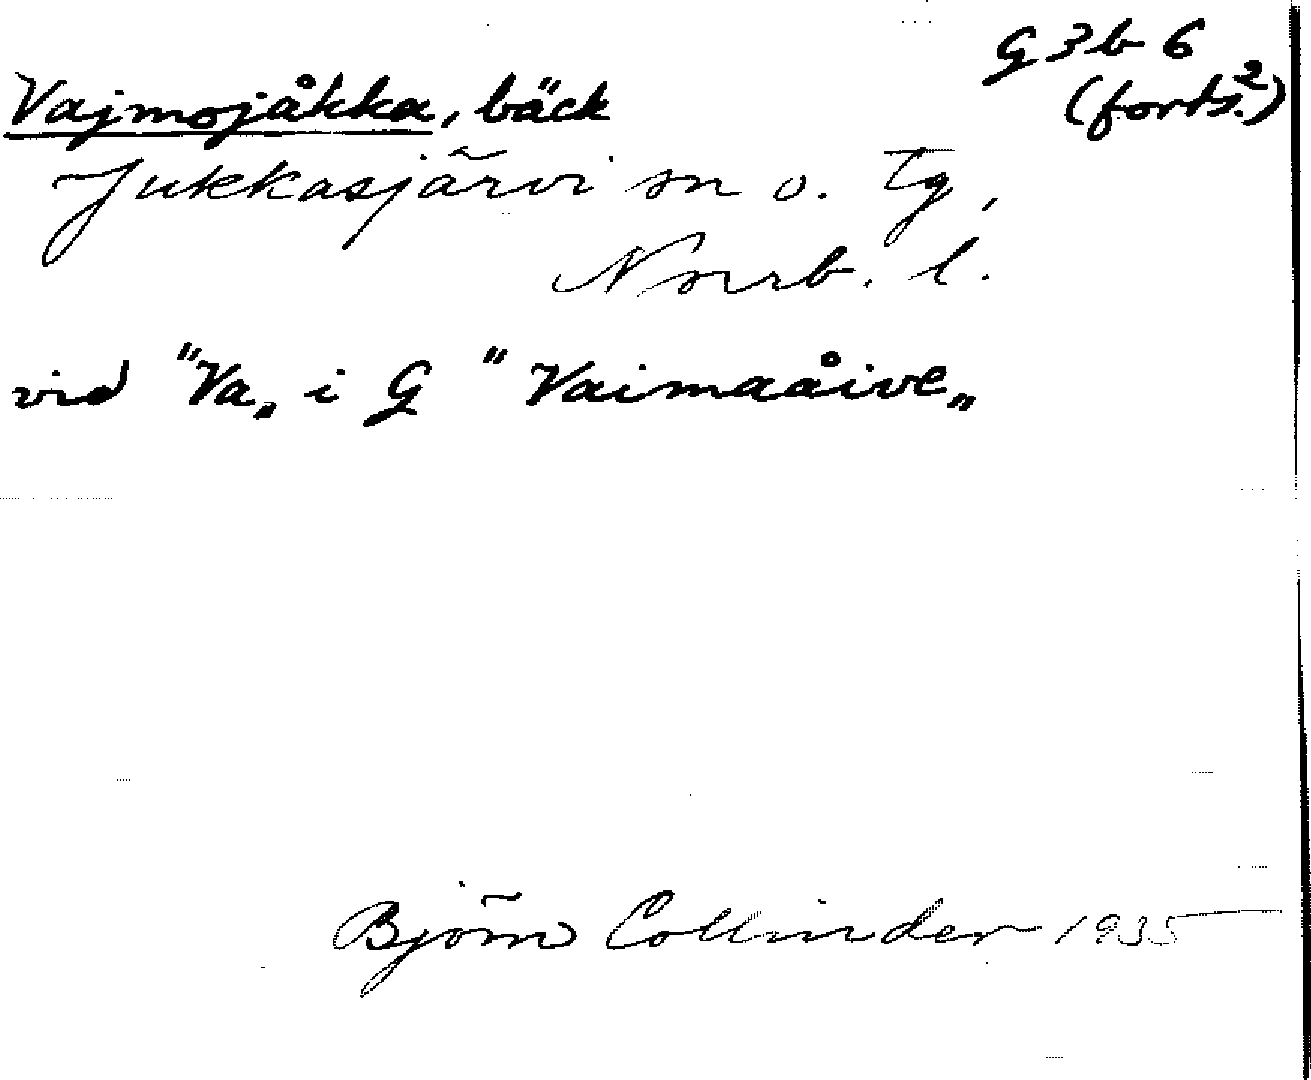 G 3 b 6
Vajmojåkka, bäck
(forts.2)
Jukkasjärvi sn o. Tg,
Norrb. l.
vid "Va„ i G "Vaimaåive„
Björn Collinder 1935